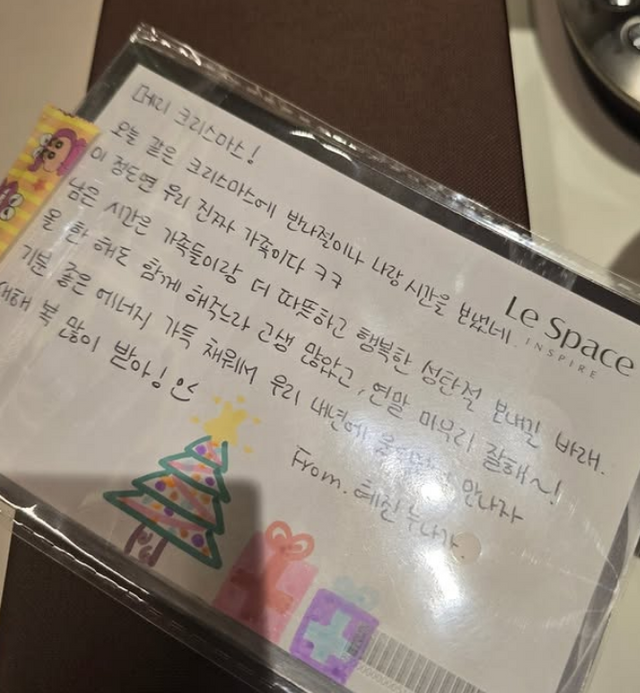 메리 크리스마스!
오늘 같은 크리스마스에 반나절이나 나랑 시간을 보냈네.
이 정도면 우리 진짜 가족이다 ㅋㅋ
남은 시간은 가족들이랑 더 따뜻하고 행복한 성탄절 보내길 바래.
올 한 해도 함께 해주느라 고생 많았고, 연말 마무리 잘해~!
기분 좋은 에너지 가득 채워서 우리 내년에 만나자
새해 복 많이 받아!
From. 혜진 누나가.
Le Space
INSPIRE